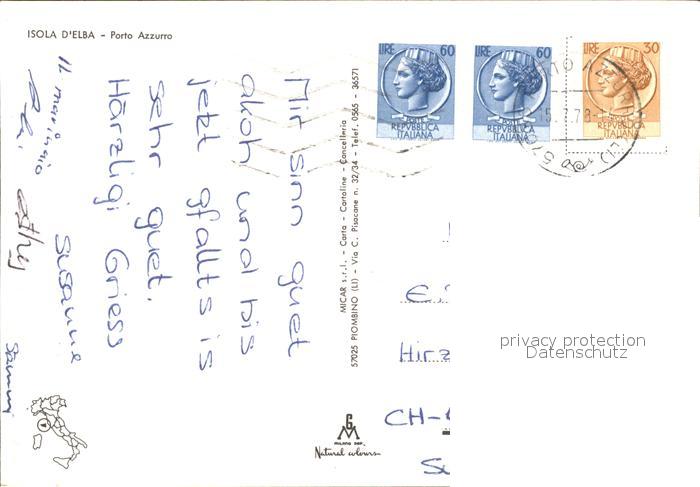 ISOLA D'ELBA - Porto Azzurro
Mir sinn guet
akoh und bis
jetzt gfallts is
sehr guet.
Härzligi Griess
Susanne
Il marinaio
MICAR s.r.l. - Carta - Cartoline - Cancelleria
57025 PIOMBINO (LI) - Via C. Pisacane n. 32/34 - Telef. 0565 - 36571
LIRE 60
POSTE
REPVBBLICA
ITALIANA
LIRE 60
POSTE
REPVBBLICA
ITALIANA
LIRE 30
REPVBBLICA
ITALIANA
Hirz
CH-
privacy protection
Datenschutz
G
M
MILANO DEP.
Natural colours